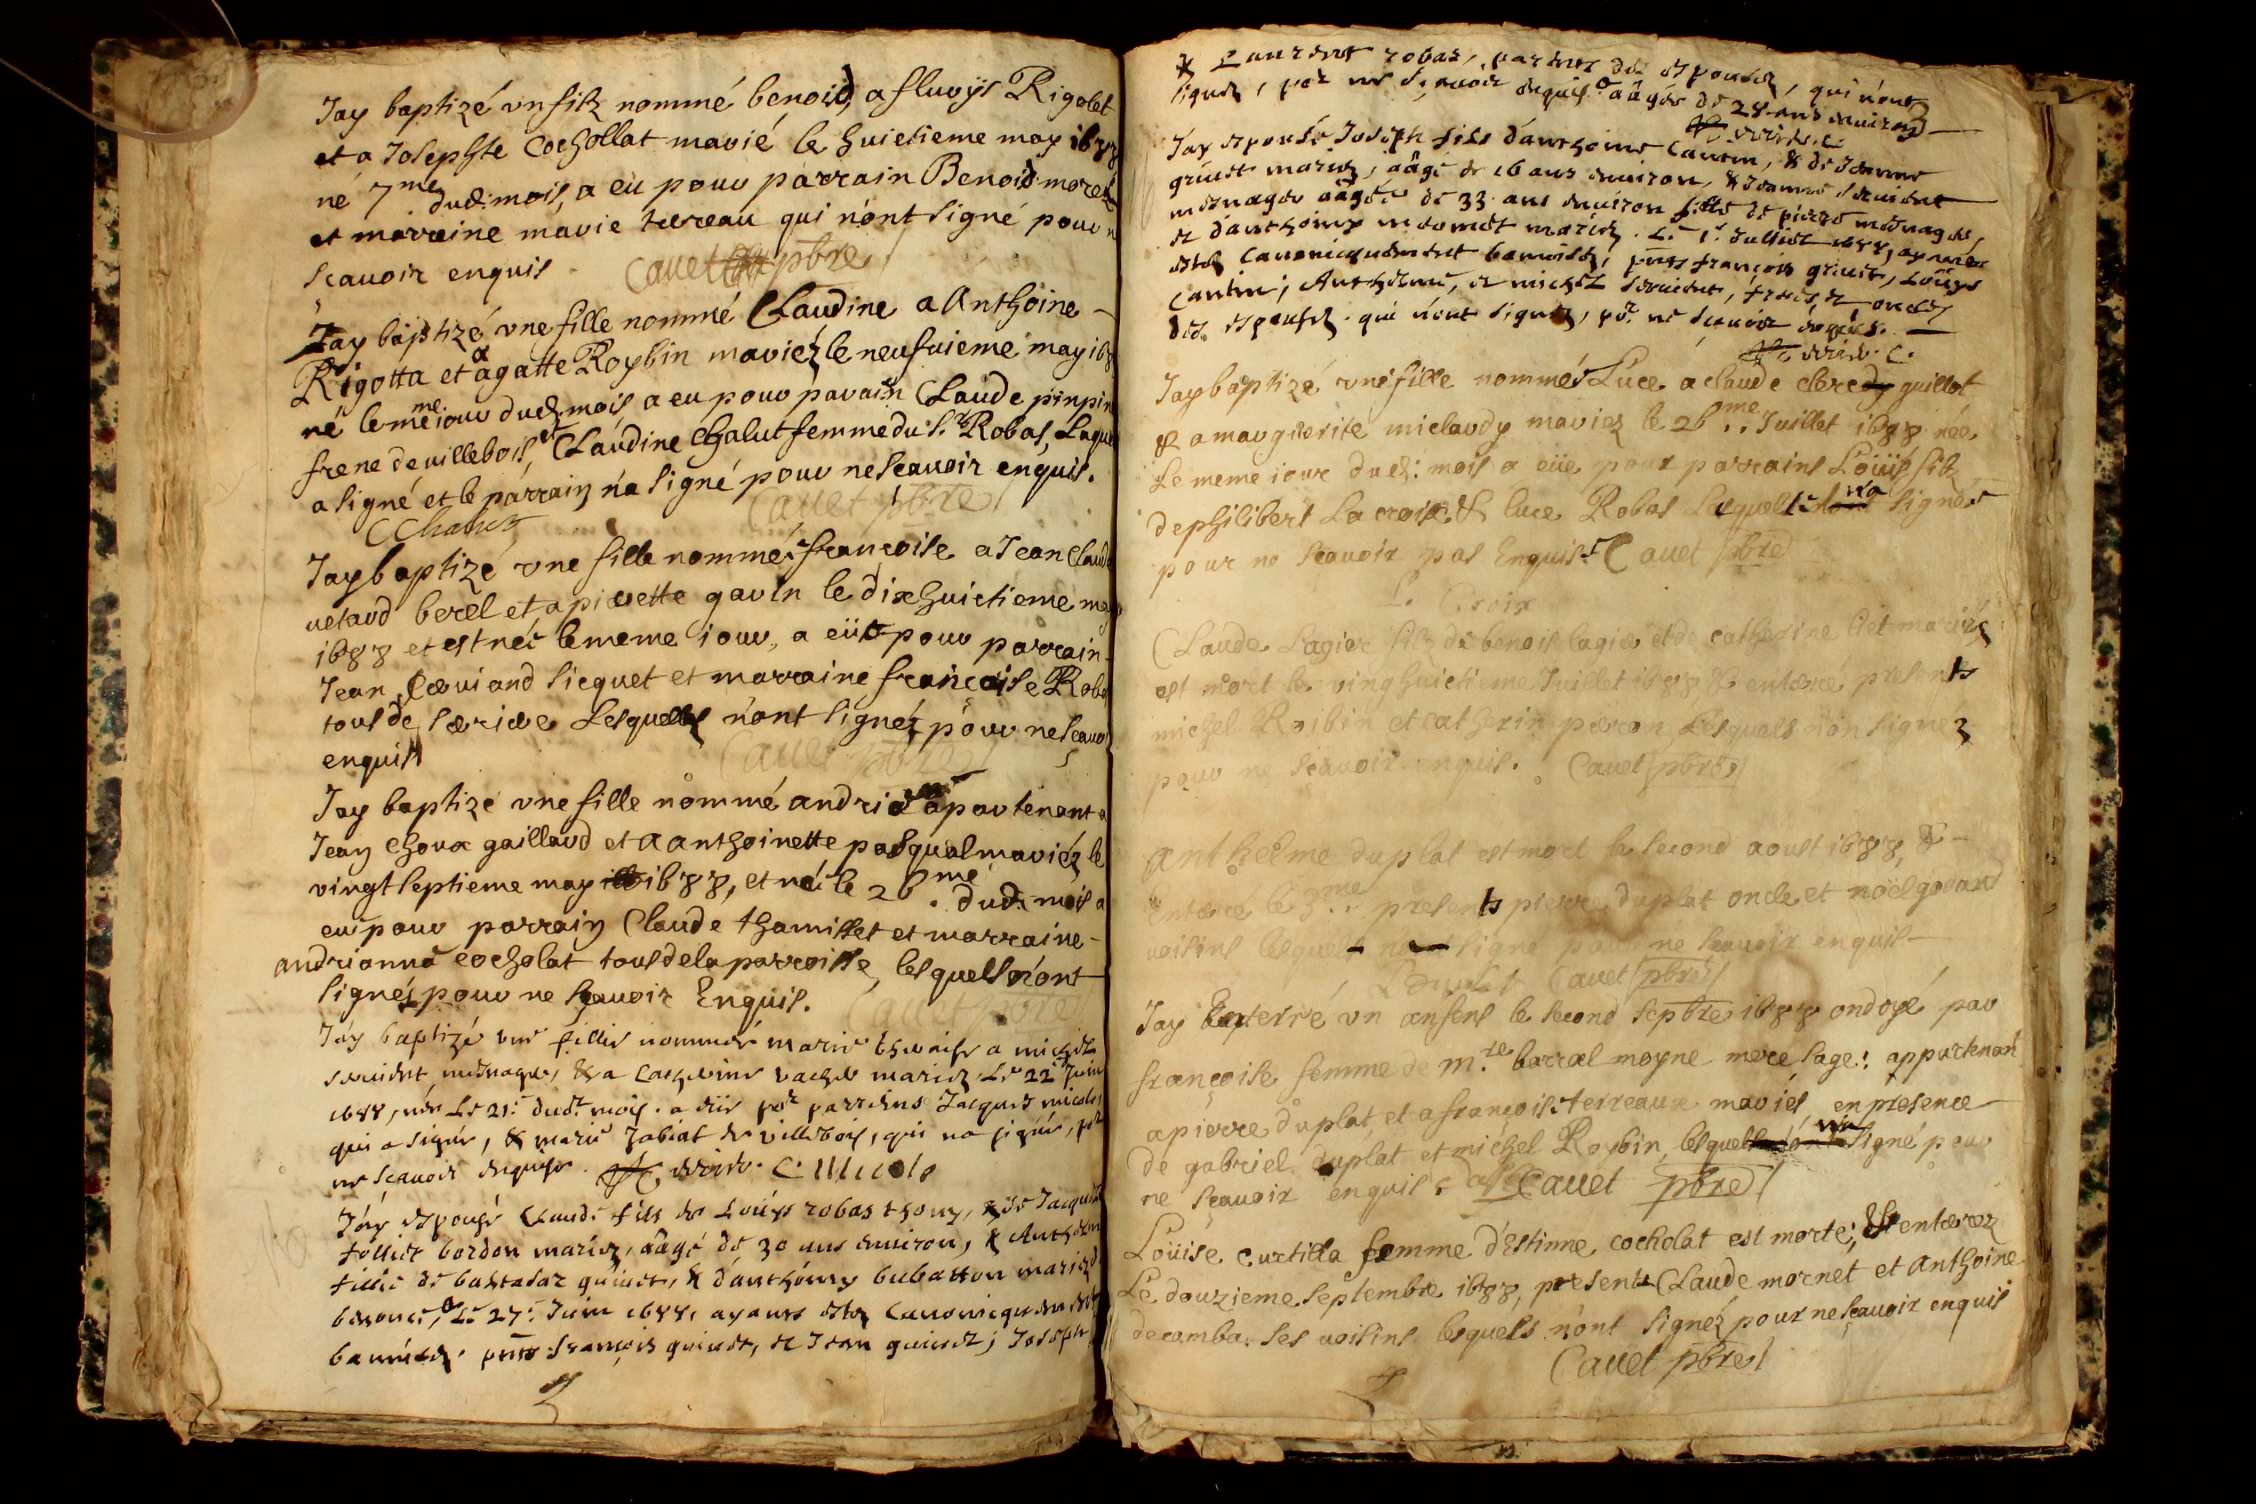 Jay baptizé vn filz nommé benoid, a fluvÿs Rigolet
et a Josephte Cochollat marié le huictieme may 1688
né 7me dud: mois, a eu pour parrain Benoid morel
et marreine marie tureau qui n'ont signé pour n
scauoir enquis Cauet pbre
Jay baptizé vne fille nommé Claudine a Anthoine
Rigotta et a agatte Roybin mariéz le neufuieme may 168
né le meme iour dud. mois a eu pour parain Claude pinpin
frene de villebois, et Claudine Chalut femme du Sr Robas, Laque
a signé et le parrain n'a signé pour ne scauoir enquis.
Chalut Cauet pbre
Jay baptizé vne fille nommée francoise a Jean Claud
uetard berel et a pierette gavin le dix huictieme ma
1688 et est née le meme iour, a eüe pour parrain
Jean Cæuiand sicquet et marraine françoise Roba
tous de Lesquells n'ont signéz pour ne scauo
enquis Cauet pbre
Jay baptizé vne fille nommé andrie apartenant a
Jean Choux gaillard et a anthoinette pasqual mariéz le
vingt septieme may 1688, et née le 26me. dud: mois a
eu pour parrain Claude thamisset et marraine
andrianne cocholat tous de la parroisse, les quells n'ont
signéz pour ne scauoir Enquis. Cauet pbre
Jay baptizé vne fillie nommée marie a michel
seruient mesnager, & a Catherine vacher mariez Le 22e Juin
1688, née Le 21e dudt mois. a eüe por parreins Jacques micoles
qui a signé, & marie Jabiat de villeboys, qui na signée, por
ne scauoir enquise. C. Micole
Jay espousé Claude fils de Loüys robas thony, & de Jacques
follier bordon mariez, aâgé de 30 ans enuiron, & Anthoine
fillie de baltasar guiuet, & d'anthoiny bubatton mariez d
benonce, Le 27e Juin 1688, ayants estez Canonicquement
bannisez. pnts françois guiuet, et Jean guiuet; Joseph
& Laurent robas, parents des espousez, qui n'ont
signez, por ne scauoir enquis. aâgée de 28 ans enuiron
Jay espousé Joseph fils d'anthoine Cantin, & de Jeanne
griuet mariez, aâgé de 26 ans enuiron, & Jeanne seruient
mesnager aâgée de 33 ans enuiron fille de pierre mesnager,
et d'anthoiny mermet mariez. Le 1r Julliet 1688, ayants
estez Canonicquement bannisez, pnts françois griuet, Loüys
Cantin; Anthelme, et michel seruient, freres, et oncles
des espousez. qui n'ont signez, por ne scauoir enquis.
Jay baptizé vne fille nommée Luce a claude guillot
& a marguerite miclaudy mariez le 26me Juillet 1688 née
Le meme iour dud: mois a eüe pour parrains Loüis filz
de philibert La croix & luce Robas Laquelle na signée
pour ne scauoir pas Enquis. Cauet pbre
L. Croix
Claude Lagier filz de benois lagier et de catherine mariés
est mort le vinghuictieme Juillet 1688 & entærré presents
michel Roibin et catherin perron Lesquels n'on signéz
pour ne scauoir enquis. Cauet pbre
anthelme duplat est mort le second aoust 1688, &
enterre le 3me presents pierre duplat oncle et noel goiand
uoisins lesquells signe pour ne scauoir enquis
duplat Cauet pbre
Jay Enterré vn anfens le second Sepbre 1688 ondoyé par
françoise femme de mtre barral moyne mere sage: appartenan
a pierre duplat et a francoise terreaux mariés, en presence
de gabriel duplat et michel Roybin, lesquells n'a signé pour
ne scauoir enquis. Cauet pbre
Loüise curtilla femme d'Estinne cocholat est morte; & entærez
Le douzieme septembre 1688, presents Claude mornet et anthoine
decamba. ses uoisins lesquels n'ont signéz pour ne scauoir enquis
Cauet pbre